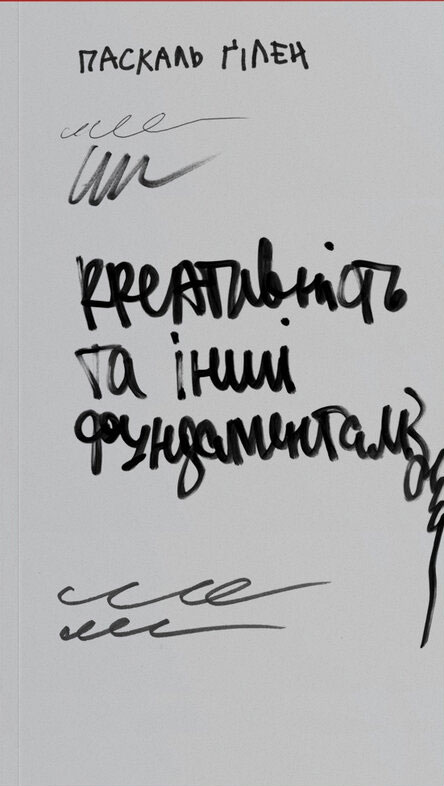 ПАСКАЛЬ ҐІЛЕН
креативність
та інші
фундаменталізми